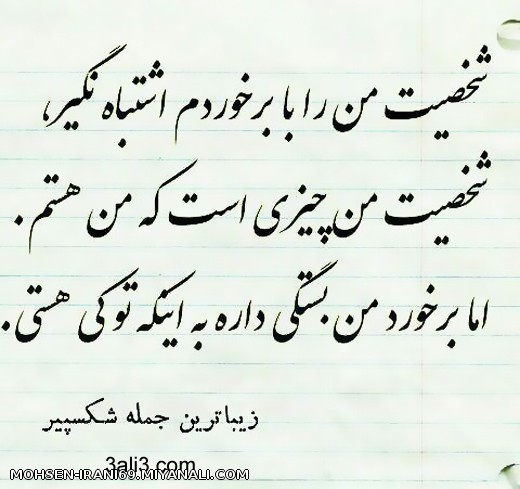 شخصیت من را با برخوردم اشتباه نگیر،
شخصیت من چیزی است که من هستم .
اما برخورد من بستگی داره به اینکه تو کی هستی .
زیباترین جمله شکسپیر
3ali3.com
MOHSEN-IRANI69.MIYANALI.COM